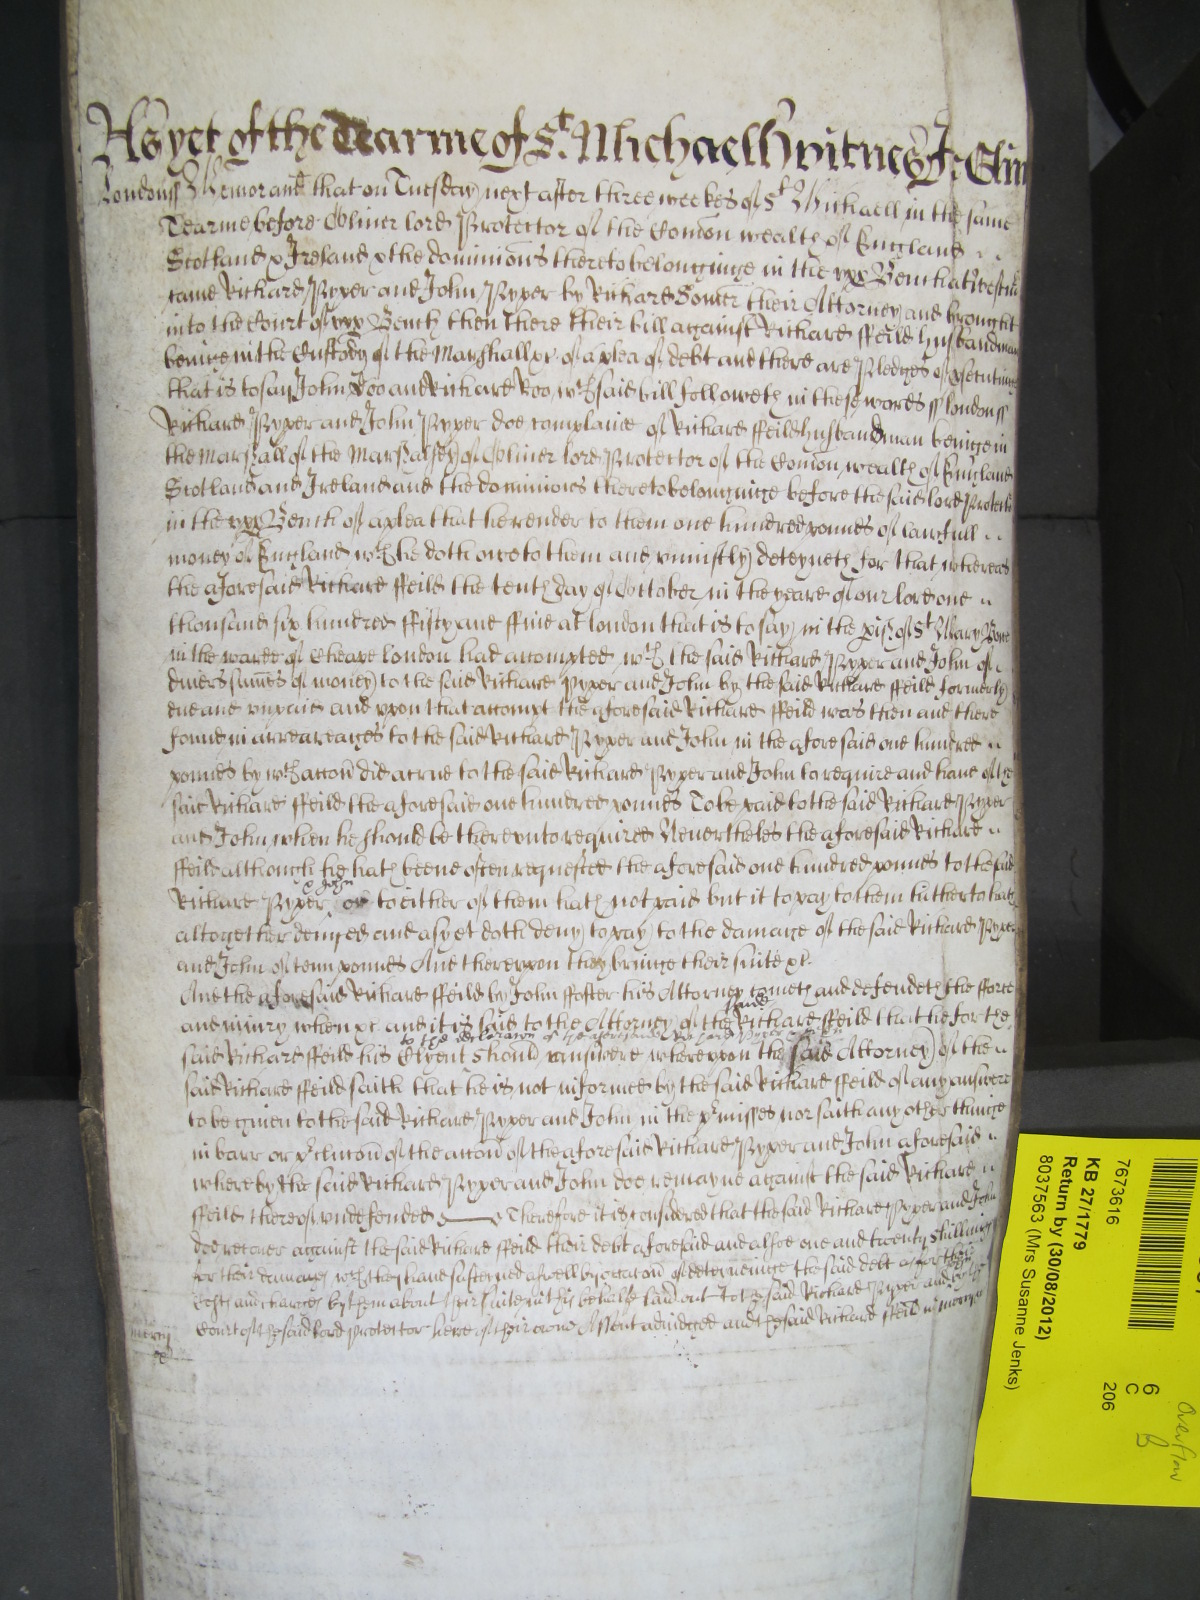 As yet of the Tearme of St. Michaell witnes J: Glin
London ss Memorand that on Tuesday next after three weekes of St Michaell in the same
Tearme before Oliver lord Protector of the Comon wealth of England
Scotland & Ireland & the dominions thereto belonginge in the upp Bench at Westm
came Richard Pyper and John Pyper by Richard Somer their Attorney and brought
into the Court of upp Bench then there their bill against Richard ffeild husbandman
beinge in the Custody of the Marshall &c of a plea of debt and there are Pledges of psecutinge
that is to say John Doo and Richard Roo wch said bill followeth in these words ss london ss
Richard Pyper and John Pyper doe complaine of Richard ffeild husbandman beinge in
the Marshall of the Marshalsey of Oliver lord Protector of the Comon wealth of England
Scotland and Ireland and the dominions thereto belonginge before the said lord Protector
in the upp Bench of a plea that he render to them one hundred pounds of lawfull
money of England wch he doth owe to them and uniustly deteyneth for that whereas
the aforesaid Richard ffeild the tenth day of October in the yeare of our lord one
thousand six hundred ffifty and ffive at london that is to say in the pish of St Mary Bowe
in the ward of Cheape london had accompted wth the said Richard Pyper and John of
divers sumes of money to the said Richard Pyper and John by the said Richard ffeild formerly
due and unpaid and upon that accompt the aforesaid Richard ffeild was then and there
found in arrearages to the said Richard Pyper and John in the aforesaid one hundred
pounds by wch accon did acrue to the said Richard Pyper and John to require and have of the
said Richard ffeild the aforesaid one hundred pounds To be paid to the said Richard Pyper
and John when he should be thereunto required Nevertheles the aforesaid Richard
ffeild although he hath beene often requested the aforesaid one hundred pounds to the said
& John
Richard Pyper or to either of them hath not paid but it to pay to them hitherto hath
altogether denyed and as yet doth deny to pay to the damage of the said Richard Pyper
and John of tenn pounds And thereupon they bringe their suite &c
And the aforesaid Richard ffeild by John ffoster his Attorney cometh and defendeth the fforce
said
and iniury when &c and it is said to the Attorney of the Richard ffeild that he for the
to the declaracon of the aforesaid Richard Pyper & John
said Richard ffeild his Clyent should answere whereupon the said Attorney of the
said Richard ffeild saith that he is not informed by the said Richard ffeild of any answere
to be given to the said Richard Pyper and John in the pmisses nor saith any other thinge
in barr or pclucon of the accon of the aforesaid Richard Pyper and John aforesaid
whereby the said Richard Pyper and John doe remayne against the said Richard
ffeild thereof undefended Therefore it is considered that the said Richard Pyper and John
doe recover against the said Richard ffeild their debt aforesaid and alsoe one and twenty shillings
for their damages wch they have susteyned aswell by occacon of deteyneinge the said debt as for their
Costs and charges by them about their suite in this behalfe laid out to the said Richard Pyper and John by the
Court of the said lord protector here of their owne Assent adiudged and the said Richard ffeild in mercy
mercy
&c
7673616
KB 27/1779
Return by (30/08/2012)
8037563 (Mrs Susanne Jenks)
6
C
206
Overflow
B